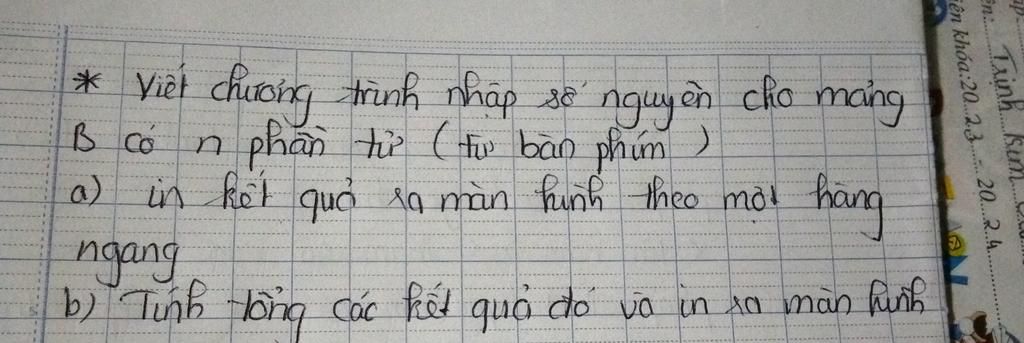 * Viết chương trình nhập số nguyên cho mảng
B có n phần tử (từ bàn phím)
a) in kết quả ra màn hình theo một hàng
ngang
b) Tính tổng các kết quả đó và in ra màn hình
iên khóa: 20.23 - 20.24
Trịnh Kim